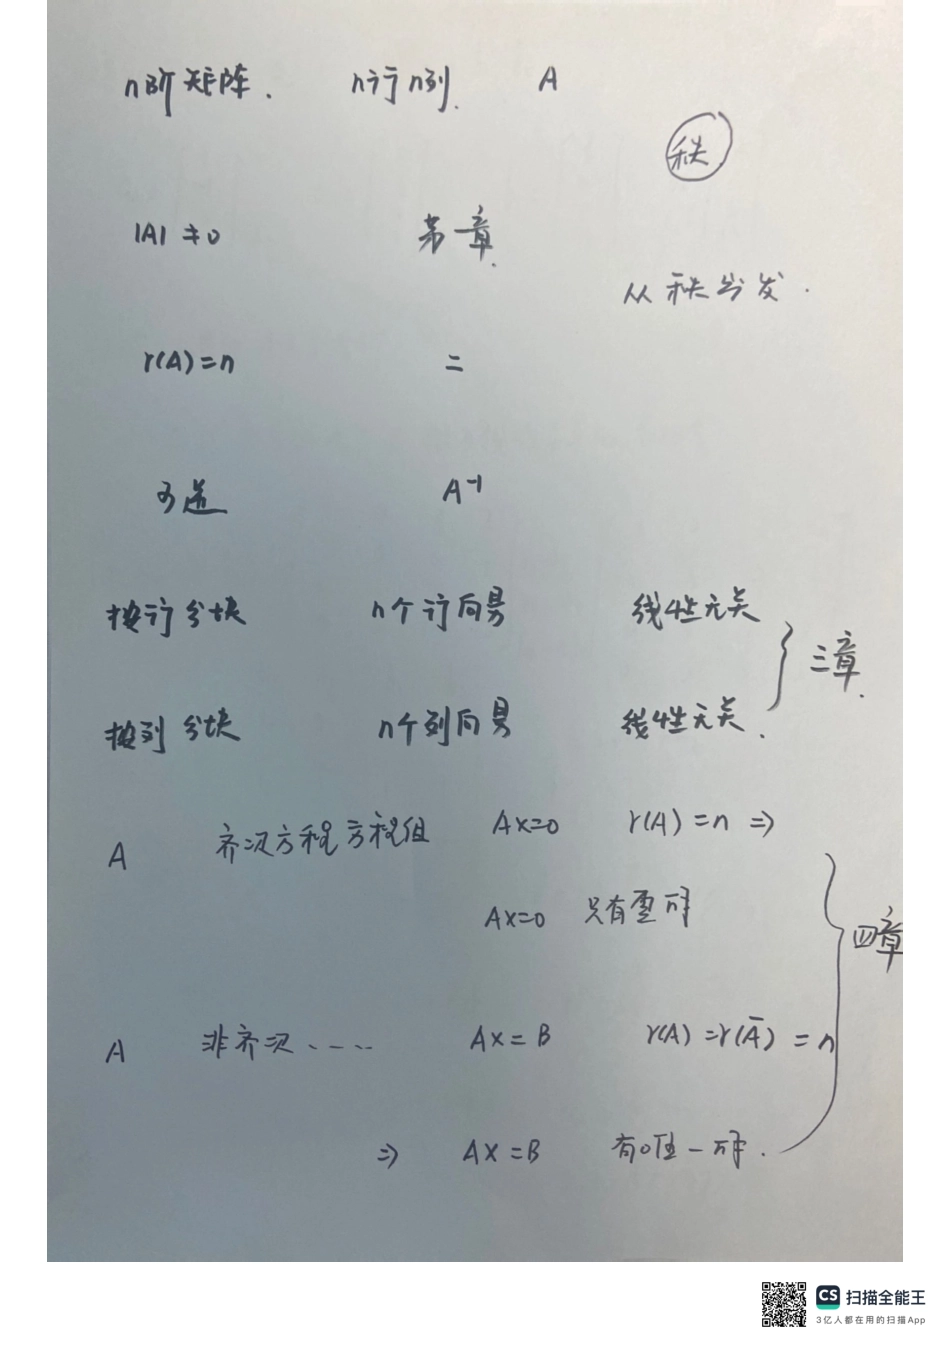 n阶矩阵. n行n列. A
秩
|A|≠0 第一章.
从秩出发.
r(A)=n 二
可逆 A⁻¹
按行分块 n个行向量 线性无关
三章.
按列分块 n个列向量 线性无关.
A 齐次方程方程组 Ax=0 r(A)=n ⇒
Ax=0 只有零解
四章
A 非齐次..... Ax=B r(A)=r(Ā)=n
⇒ Ax=B 有唯一解.
CS 扫描全能王
3亿人都在用的扫描App